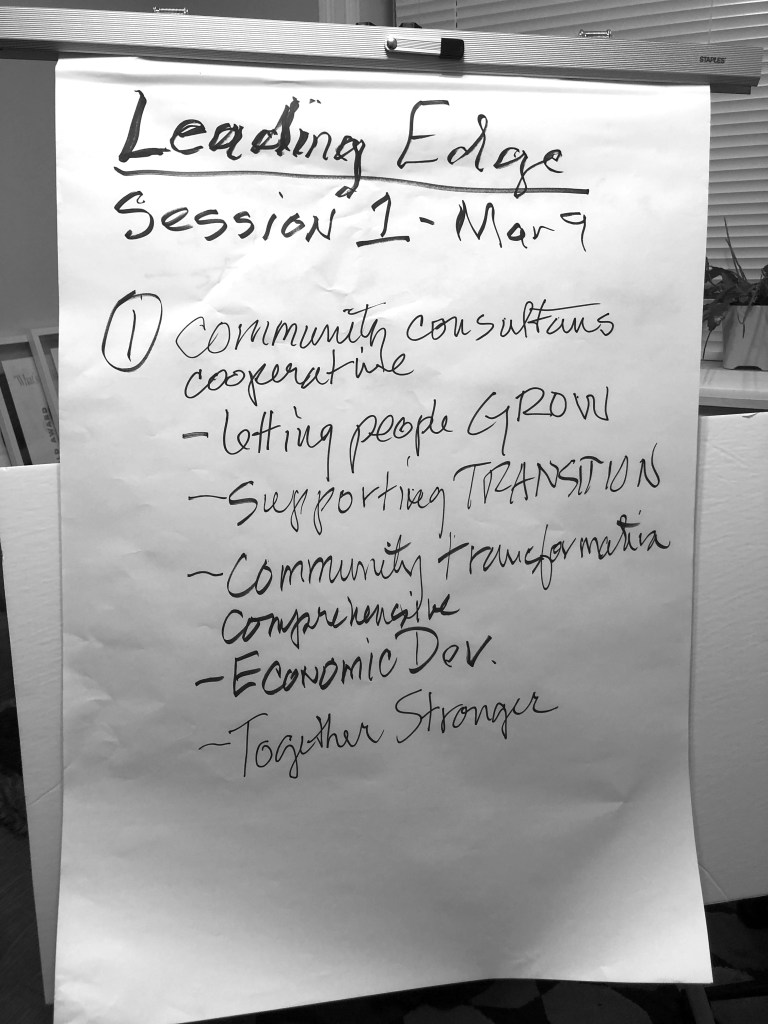 STAPLES
Leading Edge
Session 1 - Mar 9
① Community consultans
cooperative
- Letting people GROW
- Supporting TRANSITION
- Community transformation
comprehensive
- Economic Dev.
- Together Stronger
AWARD